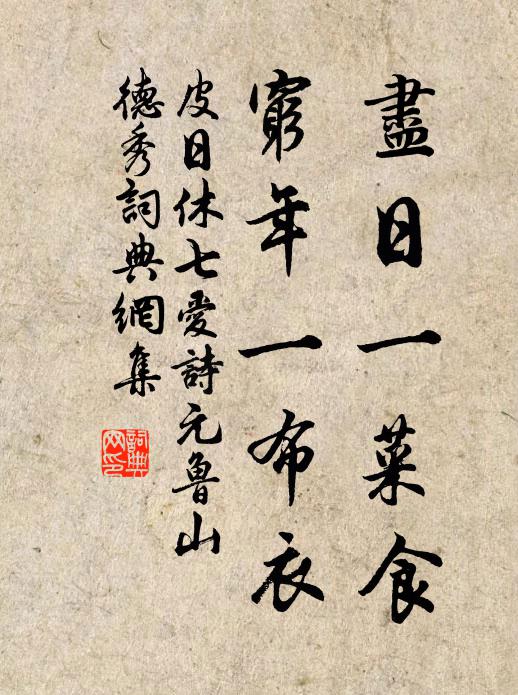 盡日一菜食
窮年一布衣
皮日休七愛詩元魯山
德秀詞典網集
詞典网印